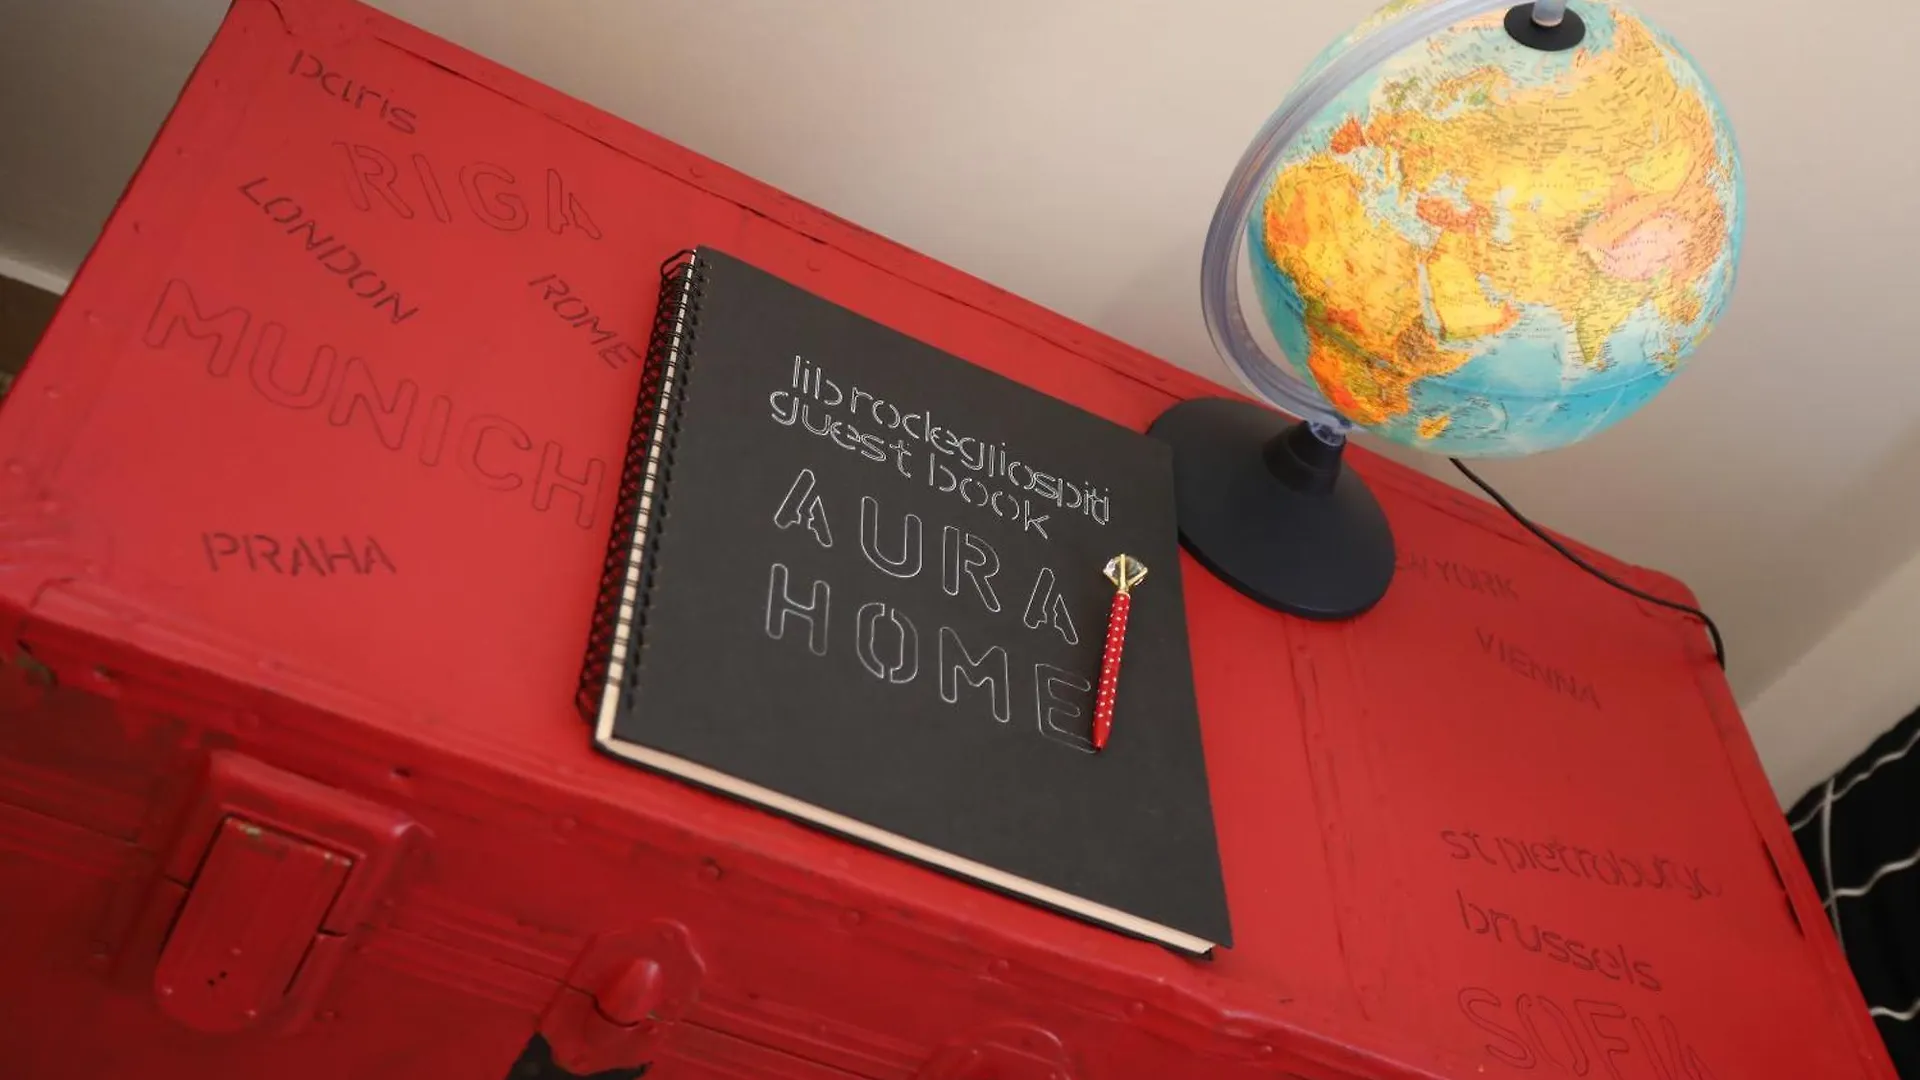 paris
RIGA
LONDON
ROME
MUNICH
PRAHA
librodegliospiti
guest book
AURA
HOME
YORK
VIENNA
st pietroburgo
brussels
SOFIA